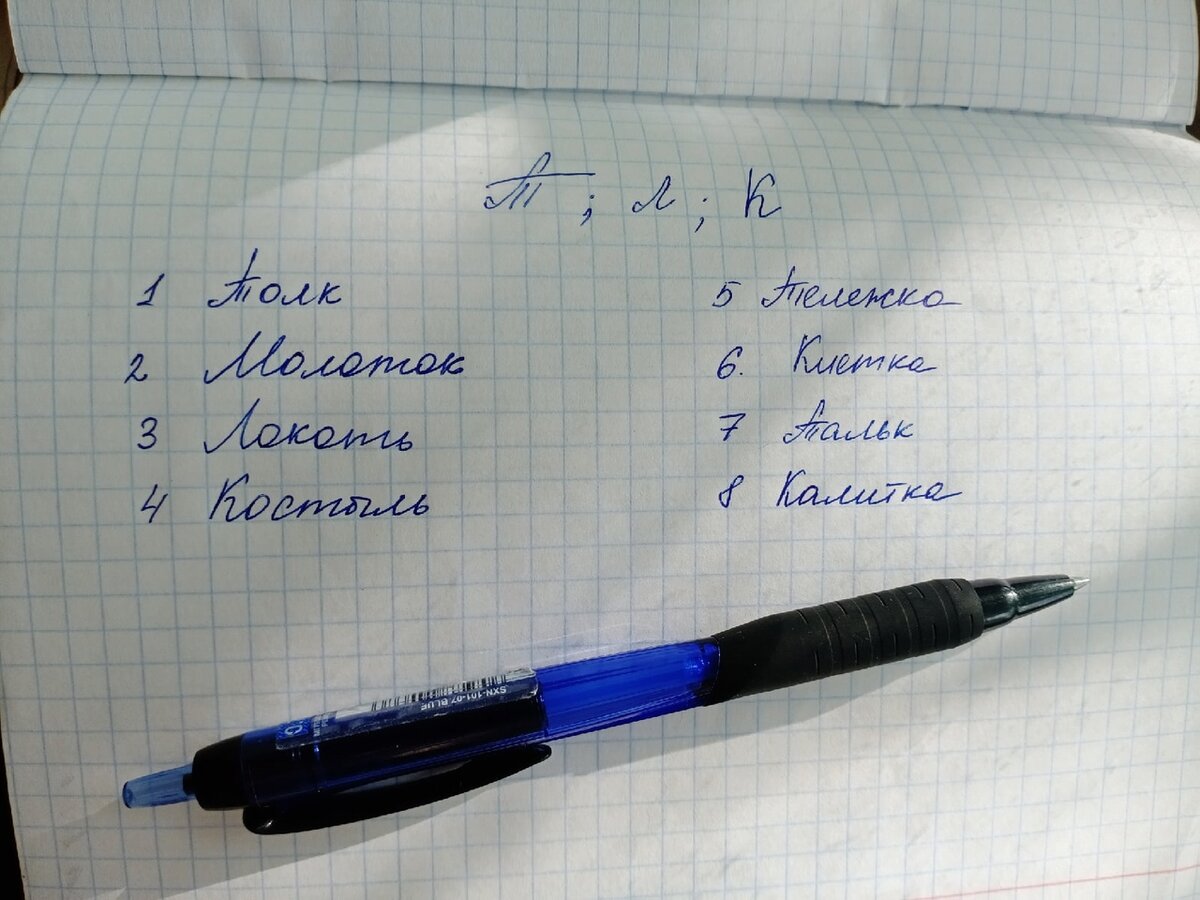 Т; Л; К
1 Толк
2 Молоток
3 Локоть
4 Костыль
5 Тележка
6. Клетка
7 Тальк
8 Калитка
SXN-101-07 BLUE